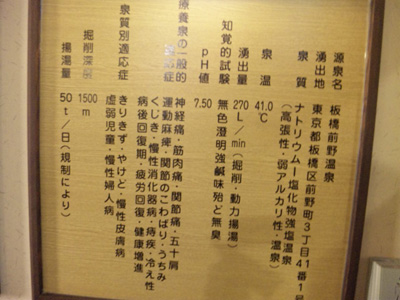 源泉名 板橋前野温泉
湧出地 東京都板橋区前野町3丁目41番1号
泉質 ナトリウムー塩化物強塩温泉
(高張性・弱アルカリ性・温泉)
泉温 41.0℃
湧出量 270L/min(掘削・動力揚湯)
知覚的試験 無色澄明強鹹味殆ど無臭
pH値 7.50
療養泉の一般的
適応症 神経痛・筋肉痛・関節痛・五十肩
運動麻痺・関節のこわばり・うちみ
くじき・慢性消化器病・痔疾・冷え性
病後回復期・疲労回復・健康増進
泉質別適応症 きりきず・やけど・慢性皮膚病
虚弱児童・慢性婦人病
掘削深度 1500m
揚湯量 50t/日(規制により)